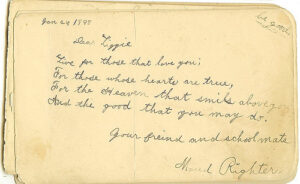 Jan 24 1898
be good
Dear Lizzie
Live for those that love you;
For those whose hearts are true,
For the Heaven that smils above you
And the good that you may do.
Your freind and schoolmate
Righter